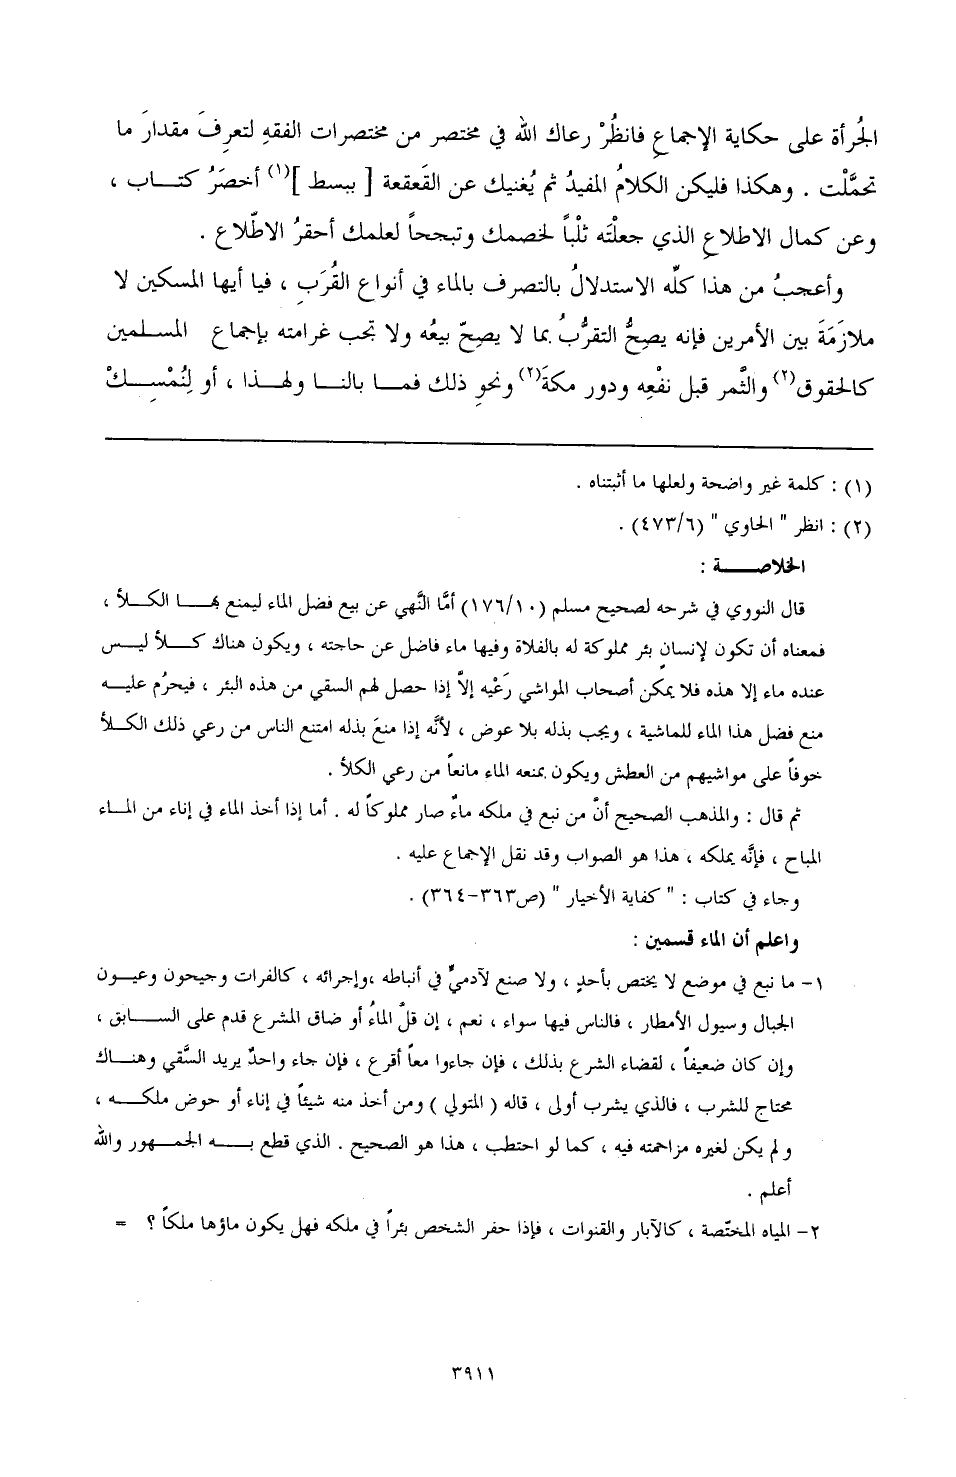 الجُرأة على حكاية الإجماعِ فانظُرْ رعاك الله في مختصر من مختصرات الفقهِ لتعرِفَ مقدارَ ما
تحمَّلْت . وهكذا فليكن الكلامُ المفيدُ ثم يُغنيك عن القَعقعة [ ببسط ](١) أخصَرُ كتــاب ،
وعن كمال الاطلاعِ الذي جعلْتَه ثلْباً لخصمك وتبجحاً لعلمك أحقرُ الاطّلاع .
وأعجبُ من هذا كلِّه الاستدلالُ بالتصرف بالماء في أنواع القُرَب ، فيا أيها المسكين لا
ملازَمَةَ بين الأمرين فإنه يصِحُّ التقرُّبُ بما لا يصِحّ بيعُه ولا تجب غرامته بإجماع المسـلمين
كالحقوق(٢) والثَّمر قبل نفْعِه ودور مكةَ(٢) ونحوِ ذلك فمــا بالنــا ولهــذا ، أو لِنُمْسِــكْ
(١) : كلمة غير واضحة ولعلها ما أثبتناه .
(٢) : انظر " الحاوي " (٤٧٣/٦) .
الخلاصــــة :
قال النووي في شرحه لصحيح مسلم (١٧٦/١٠) أمَّا النَّهي عن بيع فضل الماء ليمنع بهــا الكــلأ ،
فمعناه أن تكون لإنسانٍ بئر مملوكة له بالفلاة وفيها ماء فاضل عن حاجته ، ويكون هناك كــلأ ليــس
عنده ماء إلا هذه فلا يمكن أصحاب المواشي رَعْيه إلاَّ إذا حصل لهم السقي من هذه البئر ، فيحرُم عليــه
منع فضل هذا الماء للماشية ، ويجب بذله بلا عوض ، لأنَّه إذا منعَ بذله امتنع الناس من رعي ذلك الكــلأ
خوفاً على مواشيهم من العطش ويكون بمنعه الماء مانعاً من رعي الكلأ .
ثم قال : والمذهب الصحيح أنَّ من نبع في ملكه ماءٌ صار مملوكاً له . أما إذا أخذ الماء في إناء من المــاء
المباح ، فإنَّه يملكه ، هذا هو الصواب وقد نقل الإجماع عليه .
وجاء في كتاب : " كفاية الأخيار " (ص٣٦٣-٣٦٤) .
واعلم أن الماء قسمين :
١- ما نبع في موضع لا يختص بأحدٍ ، ولا صنع لآدميٍّ في أنباطه ،وإجرائه ، كالفرات وجيحون وعيــون
الجبال وسيول الأمطار ، فالناس فيها سواء ، نعم ، إن قلَّ الماءُ أو ضاق المشرع قدم على الســـابق ،
وإن كان ضعيفاً ، لقضاء الشرع بذلك ، فإن جاءوا معاً أقرع ، فإن جاء واحدٌ يريد السَّقي وهنــاك
محتاج للشرب ، فالذي يشرب أولى ، قاله ( المتولي ) ومن أخذ منه شيئاً في إناء أو حوض ملكــه ،
ولم يكن لغيره مزاحمته فيه ، كما لو احتطب ، هذا هو الصحيح . الذي قطع بــه الجمــهور والله
أعلم .
٢- المياه المختّصة ، كالآبار والقنوات ، فإذا حفر الشخص بئراً في ملكه فهل يكون ماؤها ملكاً ؟ =
٣٩١١